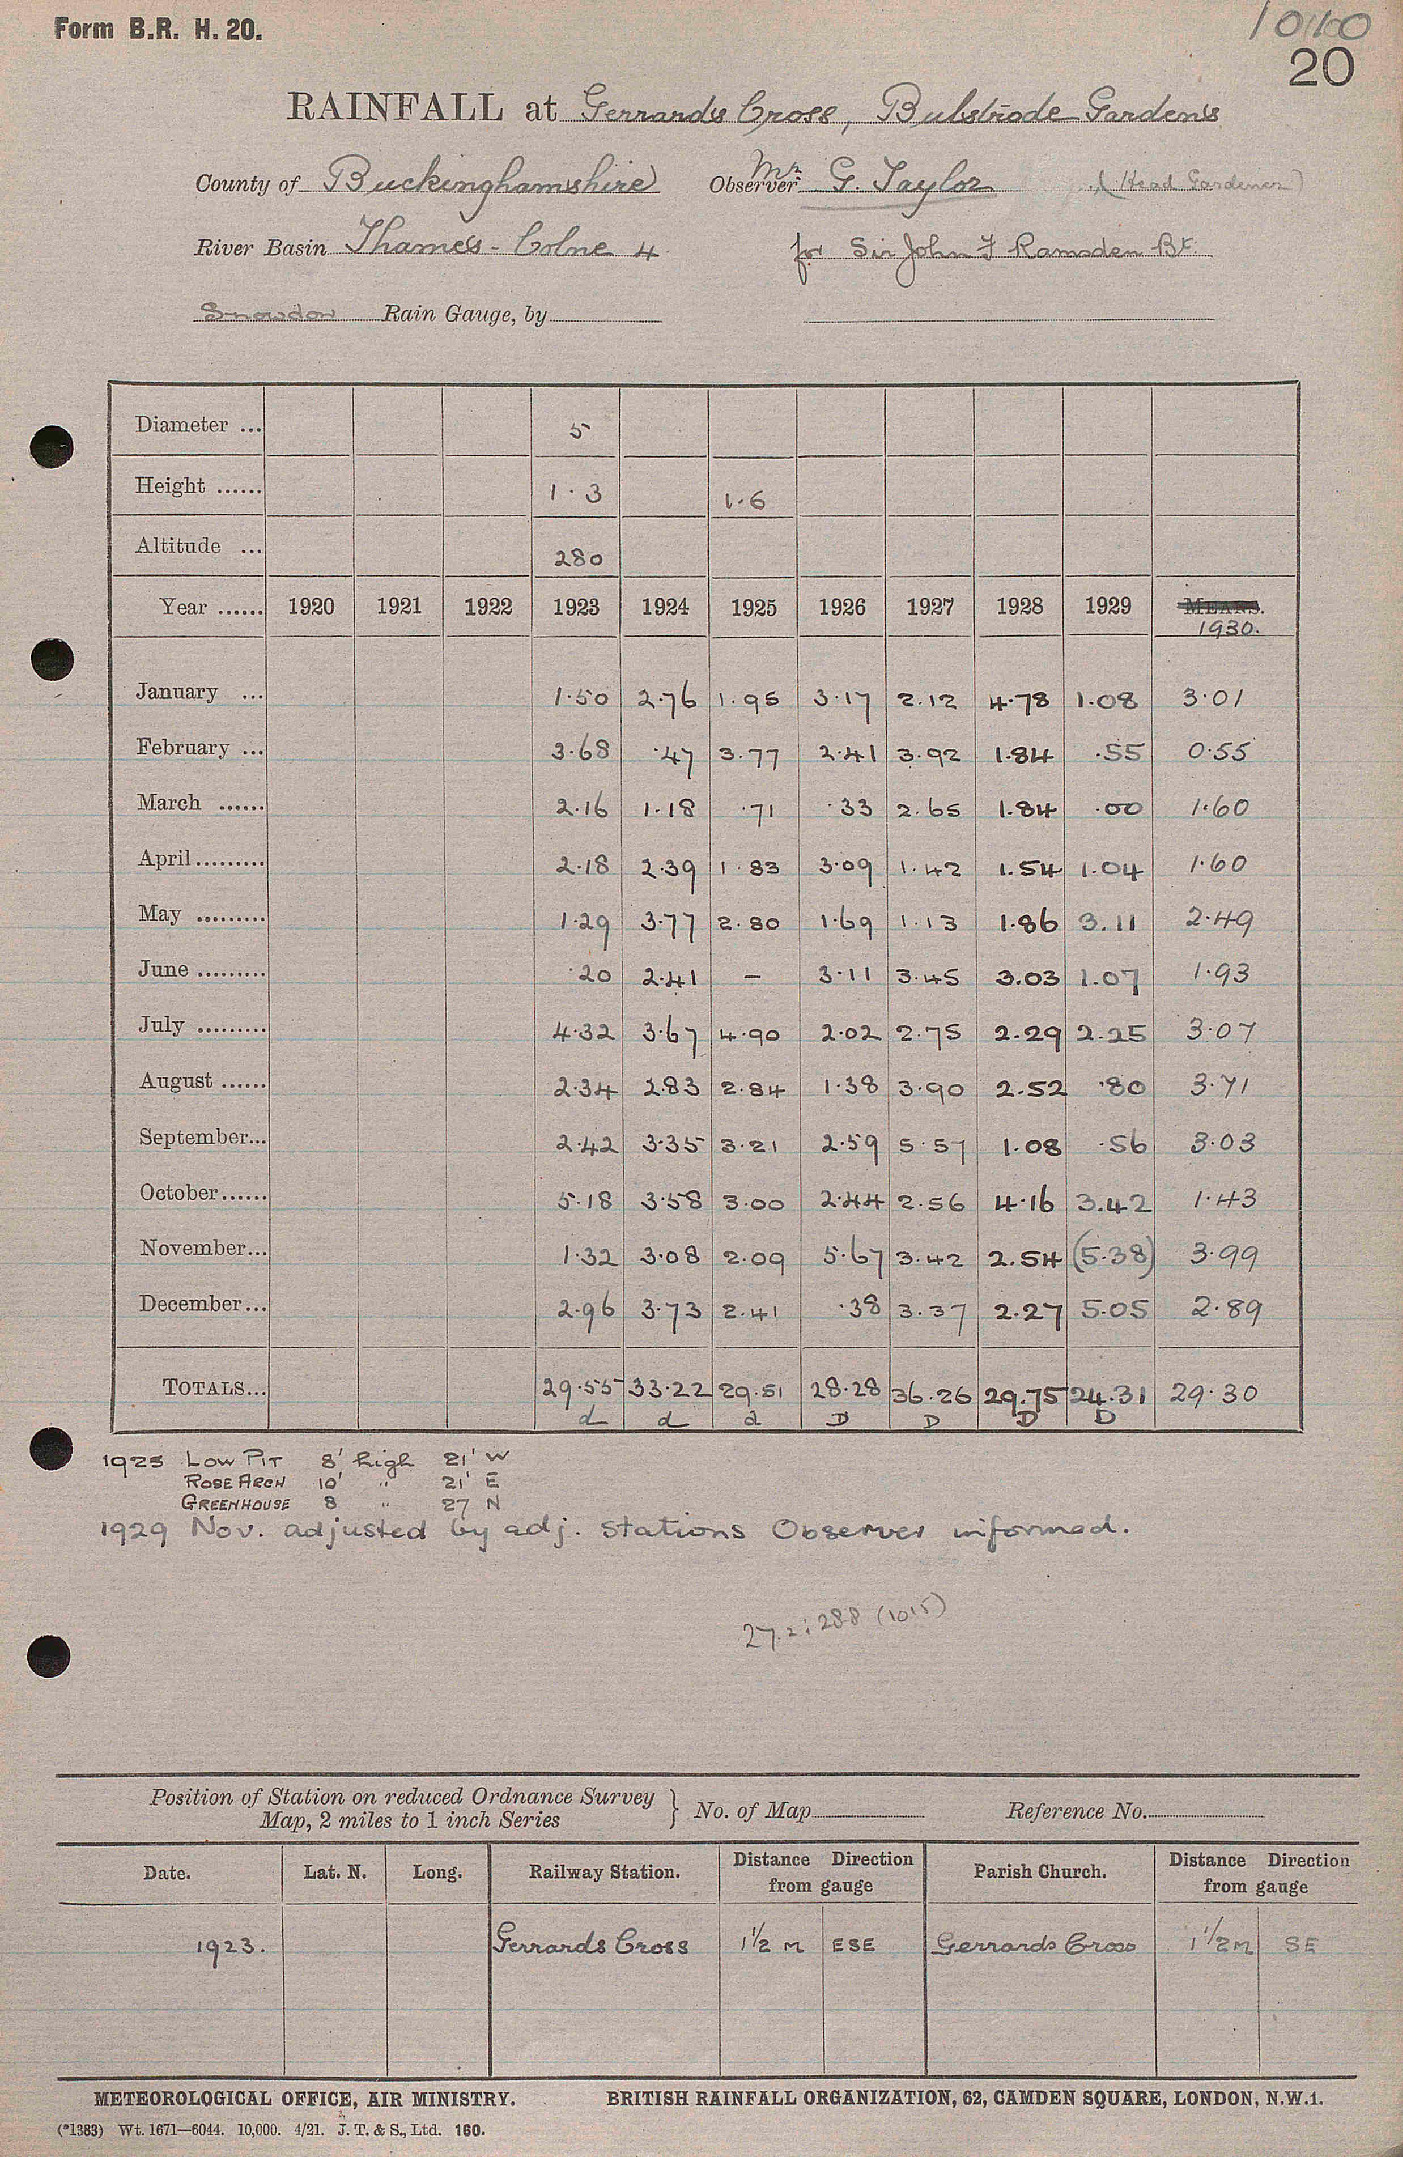 Form B.R. H. 20.
20
RAINFALL at Gerrards Cross, Bulstrode Gardens
County of Buckinghamshire Observer Mr. G. Taylor (Head Gardener)
River Basin Thames - Colne 4 for Sir John F Ramsden Bt.
Snowdon Rain Gauge, by
Diameter ... 5
Height ...... 1.3 1.6
Altitude ... 280
Year ...... 1920 1921 1922 1923 1924 1925 1926 1927 1928 1929 MEANS. 1930.
January ... 1.50 2.76 1.95 3.17 2.12 4.78 1.08 3.01
February ... 3.68 .47 3.77 2.41 3.92 1.84 .55 0.55
March ...... 2.16 1.18 .71 .33 2.65 1.84 .00 1.60
April ......... 2.18 2.39 1.83 3.09 1.42 1.54 1.04 1.60
May ......... 1.29 3.77 2.80 1.69 1.13 1.86 3.11 2.49
June ......... .20 2.41 - 3.11 3.45 3.03 1.07 1.93
July ......... 4.32 3.67 4.90 2.02 2.75 2.29 2.25 3.07
August ...... 2.34 2.83 2.84 1.38 3.90 2.52 .80 3.71
September... 2.42 3.35 3.21 2.59 5.57 1.08 .56 3.03
October...... 5.18 3.58 3.00 2.44 2.56 4.16 3.42 1.43
November... 1.32 3.08 2.09 5.67 3.42 2.54 (5.38) 3.99
December... 2.96 3.73 2.41 .38 3.37 2.27 5.05 2.89
TOTALS... 29.55 33.22 29.51 28.28 36.26 29.75 24.31 29.30
d d d D D D D
1923 LOW PIT 8' high 21' W
ROSE ARCH 10' " 21' E
GREENHOUSE 8 " 27 N
1929 Nov. adjusted by adj. stations Observer informed.
27.2; 288 (1015)
Position of Station on reduced Ordnance Survey
Map, 2 miles to 1 inch Series } No. of Map Reference No.
Date. Lat. N. Long. Railway Station. Distance Direction from gauge Parish Church. Distance Direction from gauge
1923. Gerrards Cross 1 1/2 M ESE Gerrards Cross 1 1/2 M SE
METEOROLOGICAL OFFICE, AIR MINISTRY. BRITISH RAINFALL ORGANIZATION, 62, CAMDEN SQUARE, LONDON, N.W.1.
(*1383) Wt. 1671—6044. 10,000. 4/21. J. T. & S., Ltd. 160.